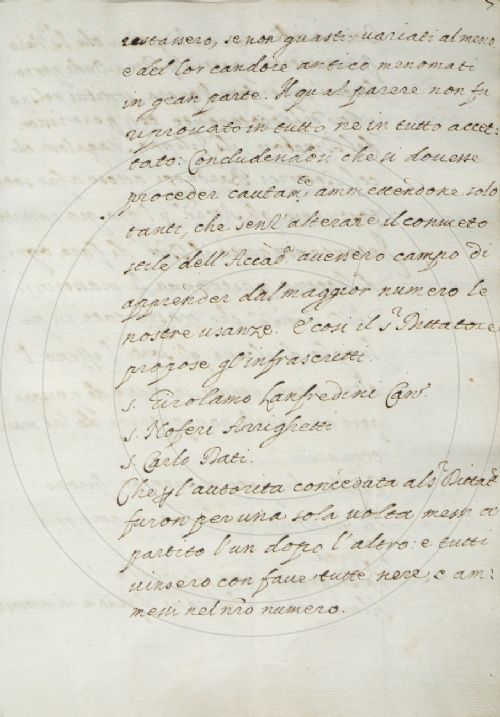 restassero, se non guasti: variati almeno
e del lor candore antico menomati
in gran parte. Il qual parere non fu
riprovato in tutto, ne in tutto accet:
tato: Concludendosi che si dovesse
proceder cautam.te ammettendone solo
tanti, che senz' alterare il consueto
stile dell' Accad.a avessero campo di
apprender dal maggior numero le
nostre usanze. E così il s.r Dittatore
propose gl' infrascritti.
s. Girolamo Lanfredini Can.co
s. Noferi Arrighetti
s. Carlo Dati.
Che l' autorità conceduta al s.r Dittat.e
furon per una sola volta messi a
partito l' un dopo l' altro: e tutti
vinsero con fave tutte nere, e am:
messi nel nro numero.